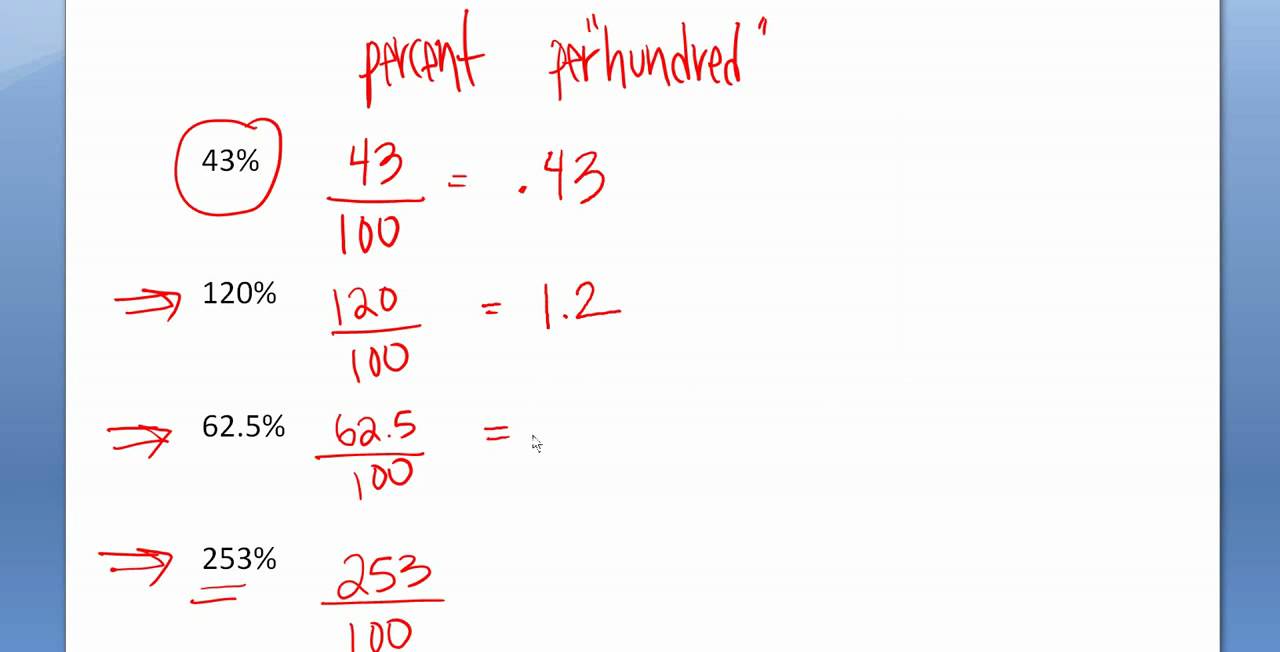 percent per "hundred"
43% 43/100 = .43
120% 120/100 = 1.2
62.5% 62.5/100 =
253% 253/100